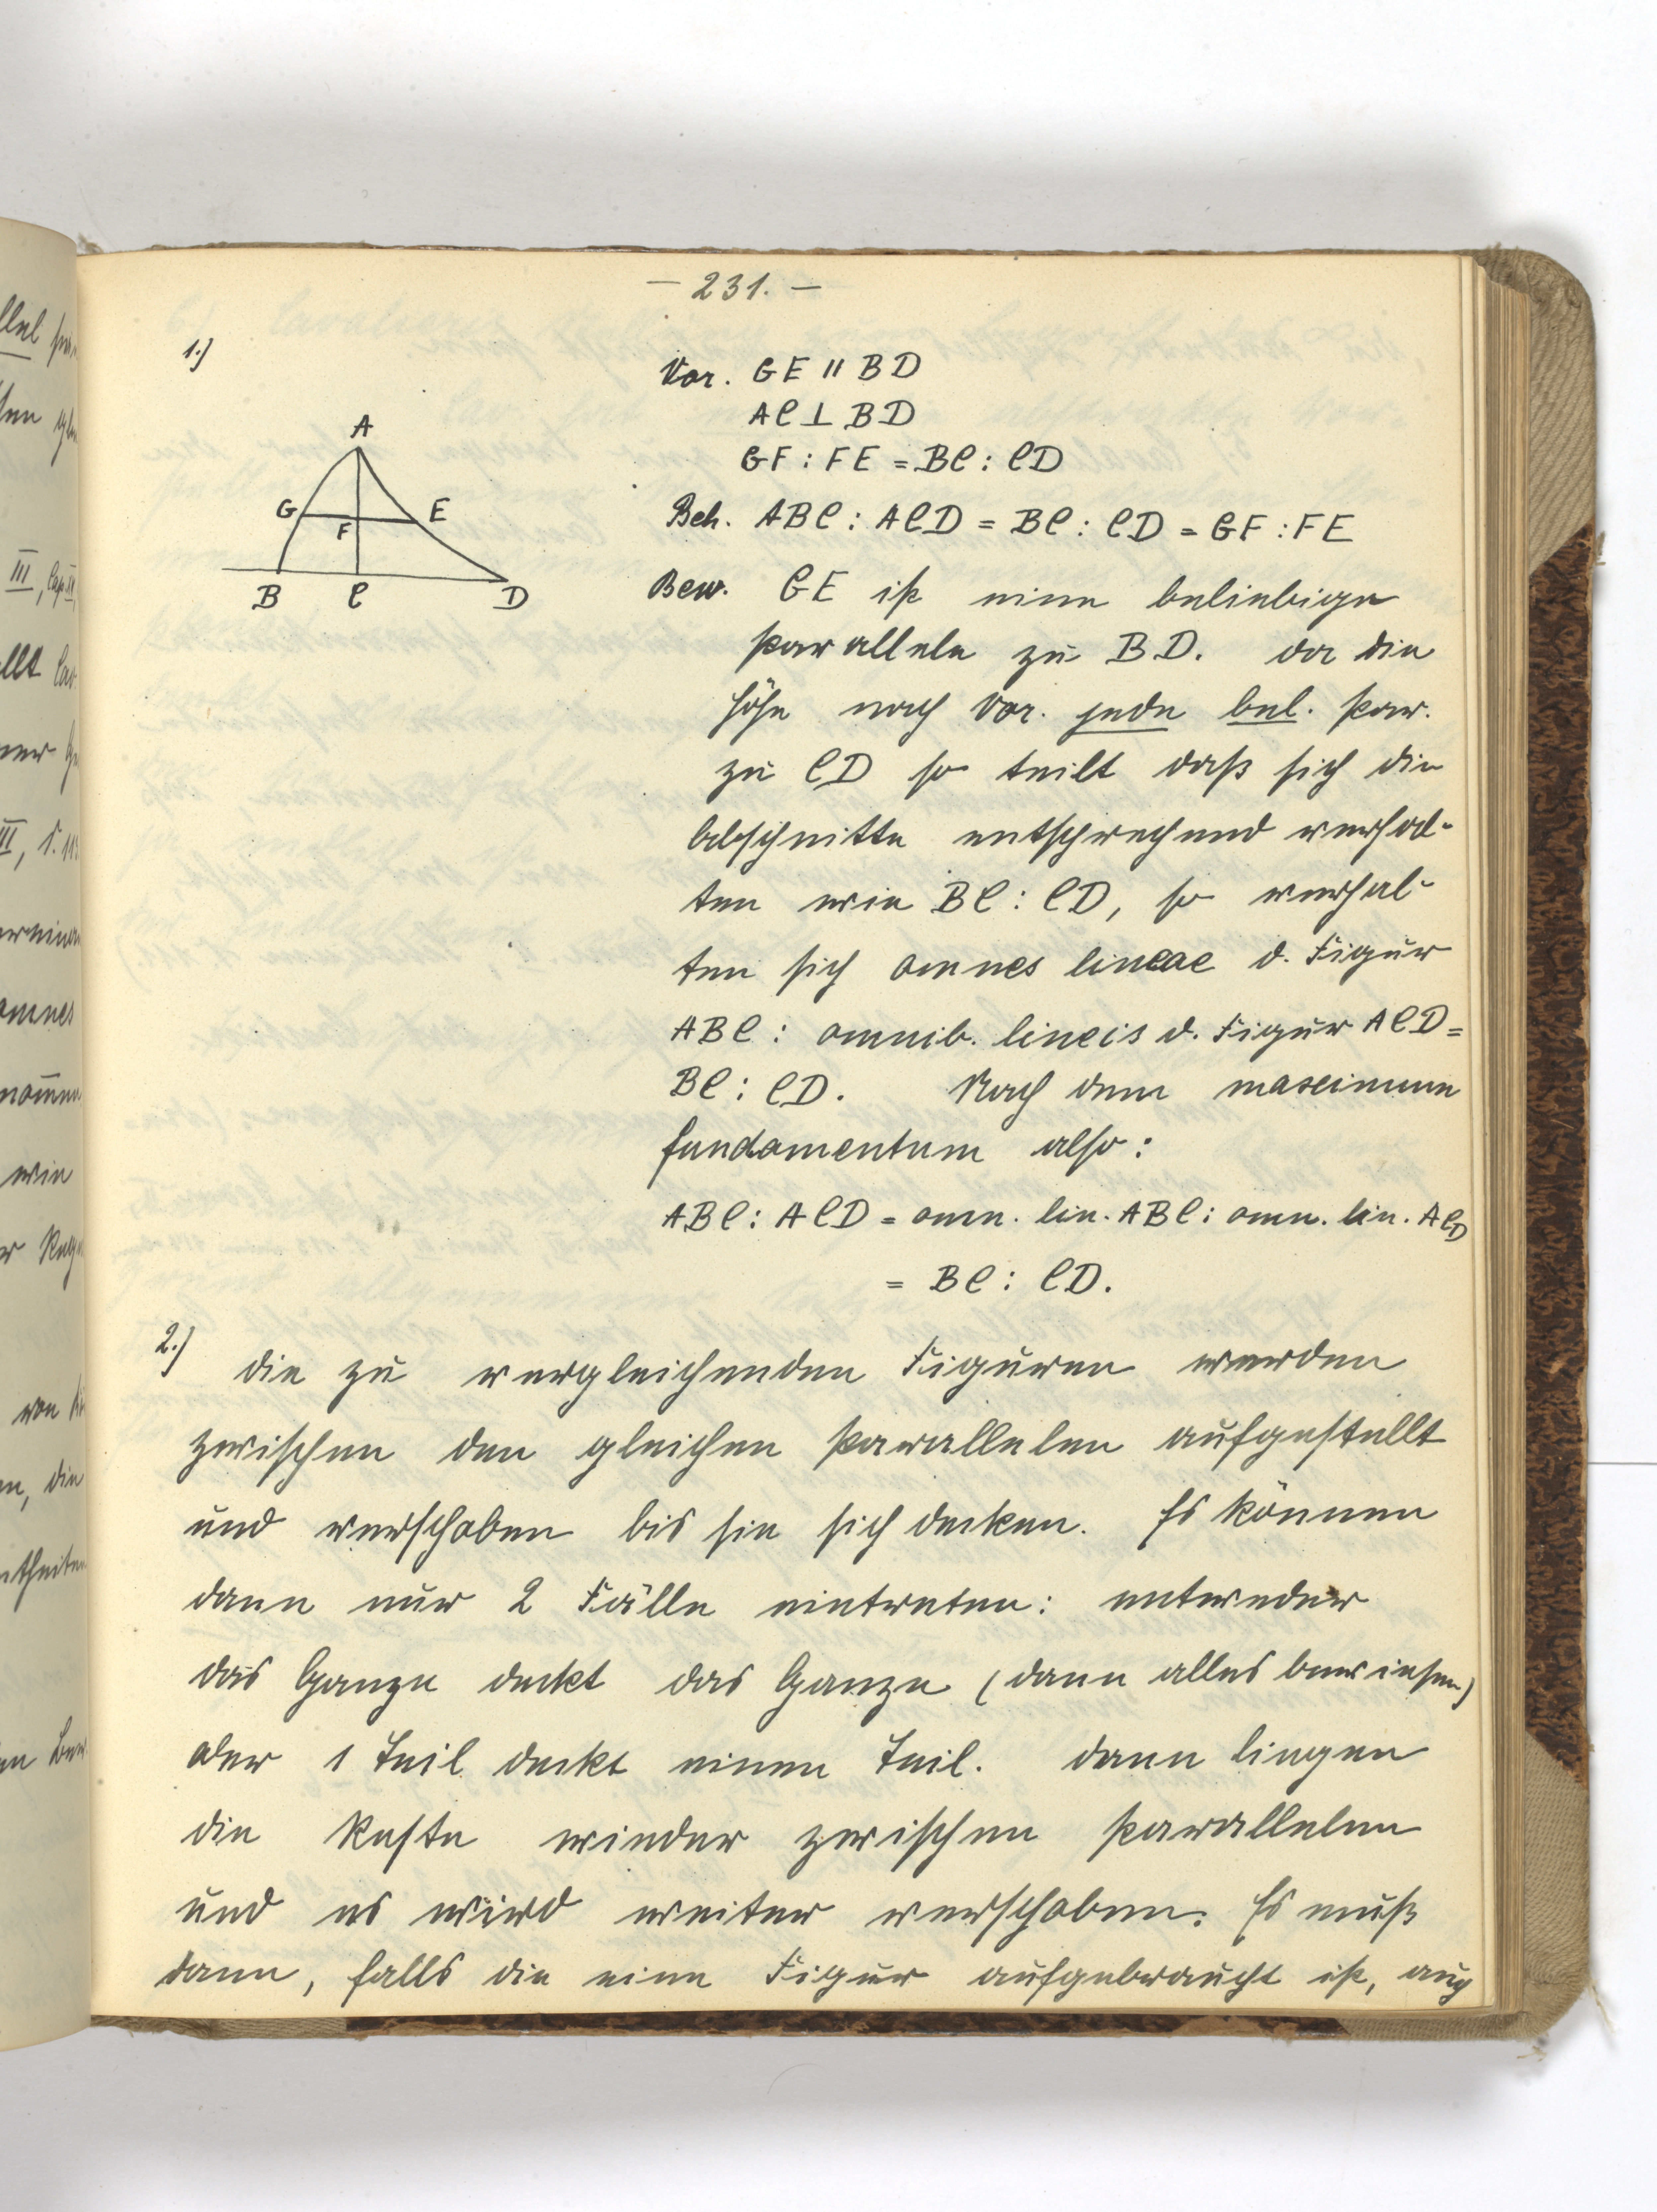 — 231. —
1.)
Vor. GE || BD
AC ⊥ BD
GF : FE = BC : CD
A
G
E
F
B
C
D
Beh. ABC : ACD = BC : CD = GF : FE
Bew. GE ist eine beliebige
Parallele zu BD. Da die
Höhe nach Vor. jede bel. Par.
zu CD so teilt daß sich die
Abschnitte entsprechend verhal-
ten wie BC : CD, so verhal-
ten sich omnes lineae d. Figur
ABC : omnib. lineis d. Figur ACD =
BC : CD. Nach dem maximum
fundamentum also:
ABC : ACD = omn. lin. ABC : omn. lin. ACD
= BC : CD.
2.) Die zu vergleichenden Figuren werden
zwischen den gleichen Parallelen aufgestellt
und verschoben bis sie sich decken. Es können
dann nur 2 Fälle eintreten: entweder
das Ganze deckt das Ganze (dann alles bewiesen)
oder 1 Teil deckt einen Teil. Dann liegen
die Reste wieder zwischen Parallelen
und es wird weiter verschoben. Es muß
dann, falls die eine Figur aufgebraucht ist, auch